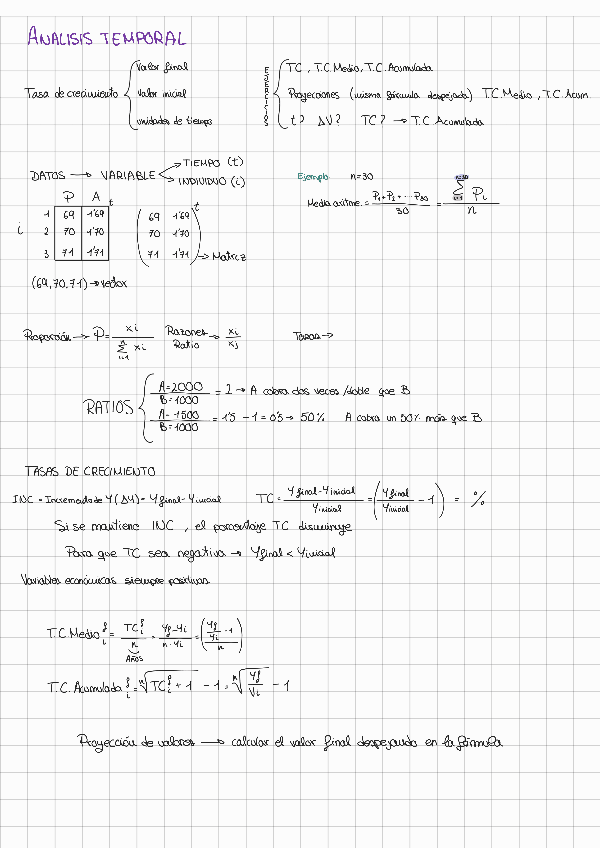 ANALISIS TEMPORAL
Tasa de crecimiento
Valor final
Valor inicial
unidades de tiempo
EJERCICIOS
TC, T.C.Medio, T.C. Acumulada
Proyecciones (misma fórmula despejada) T.C.Medio, T.C.Acum
t? ΔV? TC? → T.C Acumulada
DATOS → VARIABLE
TIEMPO (t)
INDIVIDUO (i)
Ejemplo n=30
Media aritme. = P₁+P₂+...P₃₀ / 30 = Σ Pᵢ / n
n=30
i=1
P A t
i
1 69 1'69
2 70 1'70
3 71 1'71
t
69 1'69
70 1'70
71 1'71 → Matriz
(69,70,71) → vector
Proporción → P = xi / Σ xi
n
i=1
Razones Ratio → xi / xj
Tasas →
RATIOS
A=2000 / B=1000 = 2 → A cobra dos veces/doble que B
A=1500 / B=1000 = 1'5 - 1 = 0'5 → 50% A cobra un 50% más que B
TASAS DE CRECIMIENTO
INC = Incremento de Y (ΔY) = Yfinal - Yinicial TC = Yfinal-Yinicial / Yinicial = (Yfinal / Yinicial - 1) = %
Si se mantiene INC, el porcentaje TC disminuye
Para que TC sea negativa → Yfinal < Yinicial
Variables económicas siempre positivas
T.C.Medio f i = TC f i / n = Yf-Yi / n·Yi = (Yf / Yi - 1 / n)
AÑOS
T.C. Acumulada f i = ⁿ√TC f i + 1 - 1 = ⁿ√Yf / Vi - 1
Proyección de valores → calcular el valor final despejando en la fórmula